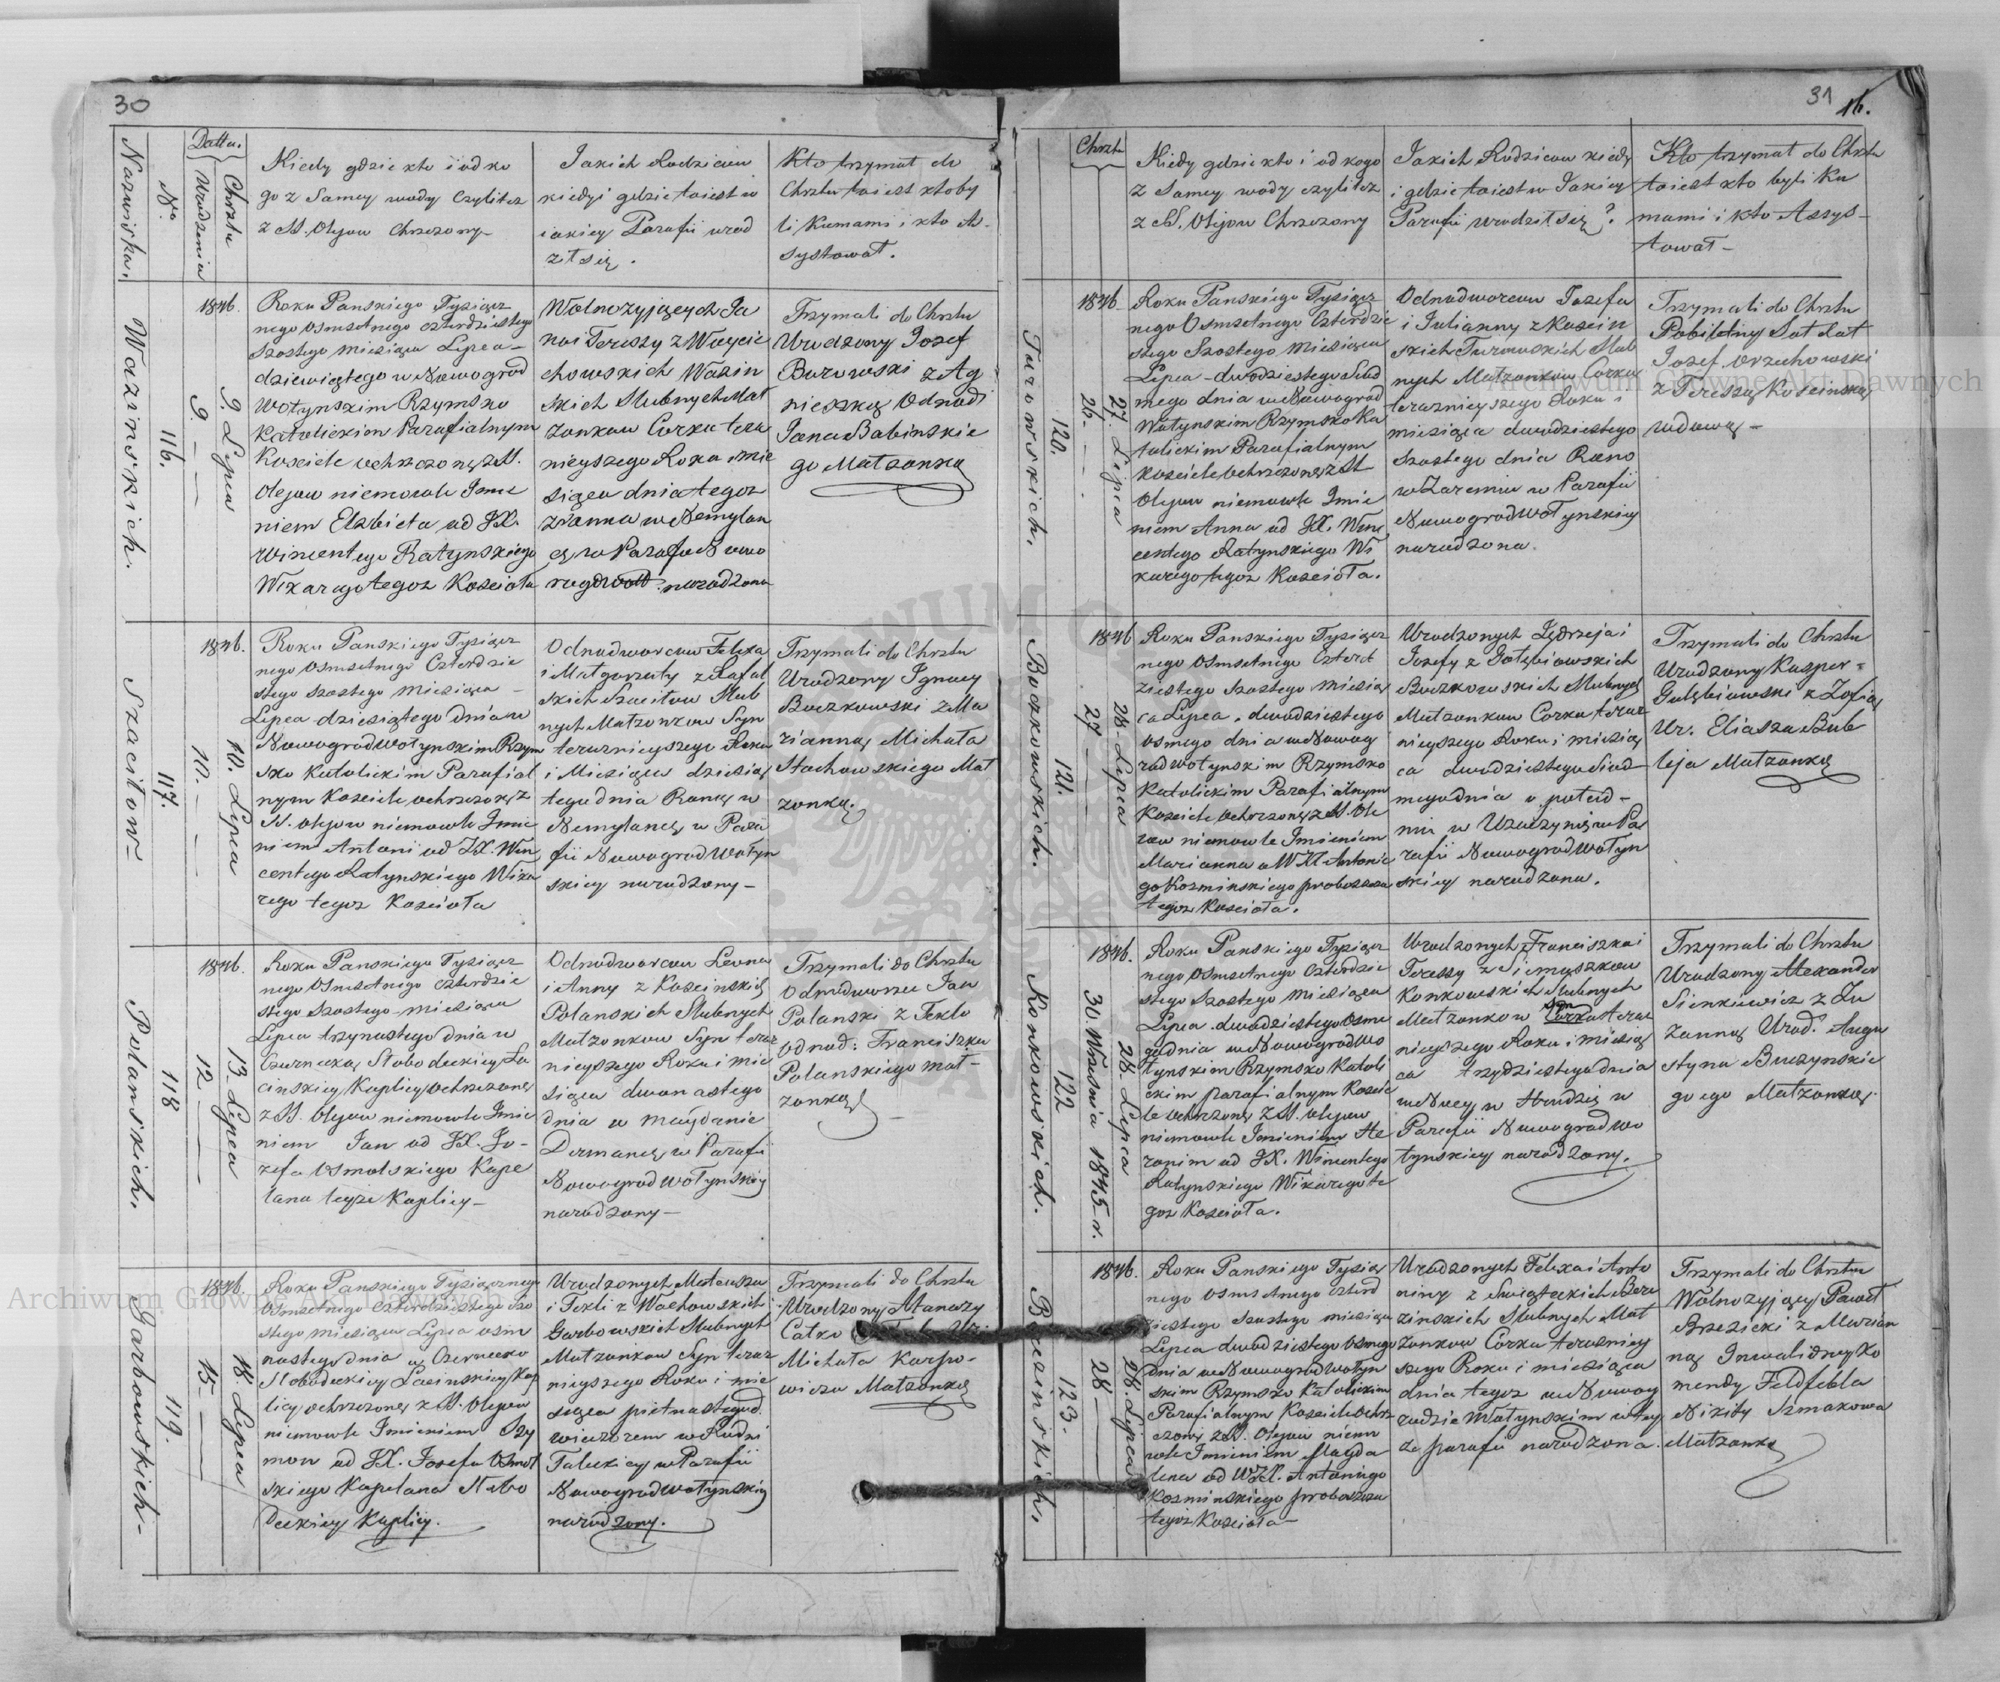 30
Nazwiska.
No
Datta.
Urodzenia
Chrztu
Kiedy gdzie kto i od ko
go z Samey wody czylitez
z SS. Olejow Chrzczony
Jakich Rodzicow
kiedy i gdzie toiest w
iakiey Parafii urod
ził się.
Kto trzymał do
Chrztu toiest kto by
li Kumami i kto As-
systował.
Wazinskich.
116.
9. —
9. Lipca
1846.
Roku Panskiego Tysiącz
nego Osmsetnego czterdziestego
szostego miesiąca Lipca —
dziewiątego w Nowogrod
Wołynskim Rzymsko
Katolickim Parafialnym
Kosciele ochrzczonę z SS.
Olejow niemowle Imie
niem Elzbieta od JX.
Wincentego Ratynskiego
Wikarego tegoz Kościoła
Wolnozyjących Ja
na i Teressy z Woycie
chowskich Wazin
skich Slubnych Mał
zonkow Corka tera
znieyszego Roku i mie
siąca dnia tegoz
z ranna w Nemylan
cę w Parafii Nowo
narodzona
Trzymali do Chrztu
Urodzony Jozef
Burowski z Ag
nieszką Odnod:
Jana Babinskie
go Małzonką
Szacitow
117.
10. —
10. Lipca
1846.
Roku Panskiego Tysiącz
nego Osmsetnego Czterdzie
stego szostego miesiąca —
Lipca dziesiątego dnia w
Nowogrodwołynskim Rzym
sko Katolickim Parafial
nym Kosciele ochrzczonę z
SS. olejow niemowle Imie
niem Antoni od JX. Win
centego Ratynskiego Wika
rego tegoz Kościoła
Odnodworcow Felixa
i Małgorzaty z Rafal
skich Szacitow Slub
nych Małzonkow Syn
teraznieyszego Roku
i Miesiąca dziesią
tego dnia Ranę w
Nemylancę w Para
fii Nowogrodwołyn
skiey narodzony —
Trzymali do Chrztu
Urodzony Ignacy
Buczkowski z Ma
rianną Michała
Stachowskiego Mał
zonką.
Polanskich.
118
12 —
13 Lipca
1846.
Roku Panskiego Tysiącz
nego Osmsetnego czterdzie
stego szostego miesiąca
Lipca trzynastego dnia w
Słobodeckiey Ła
cinskiey Kaplicy ochrzczonę
z SS. Olejow niemowle Imie
niem Jan od JX. Jo-
zefa Osmolskiego Kape
lana teyze Kaplicy —
Odnodworcow Leona
i Anny z Koscinskich
Polanskich Slubnych
Małzonkow Syn teraz
nieyszego Roku i mie
siąca dwunastego
dnia w Maydanie
Dermancę w Parafii
Nowogrodwołynskiey
narodzony —
Trzymali do Chrztu
Odnodworzec Jan
Polanski z Teklo
Odnod: Franciszka
Polanskiego mał-
zonką
Garbowskich —
119.
15 —
18. Lipca
1846.
Roku Panskiego Tysiącznego
Osmsetnego Czterdziestego Szo
stego miesiąca Lipca osm
nastego dnia w
Słobodeckiey Łacinskiey Kap
licy ochrzczonę z SS. Olejow
niemowle Imieniem Szy
mon od JX. Josefa Osmol
skiego Kapelana Słobo
deckiey Kaplicy.
Urodzonych Mateusza
i Tekli z Wachowskich
Garbowskich Slubnych
Małzonkow Syn teraz
nieyszego Roku i mie
siąca piętnastego d.
wieczorem w Rudni
w Parafii
Nowogrodwołynskiey
narodzony.
Trzymali do Chrztu
Urodzony Atanazy
Michała Karpo-
wicza Małzonką
31
16.
Chrztu
Kiedy gdzie kto i od kogo
z Samey wody czylitez
z SS. Olejow Chrzczony
Jakich Rodzicow kiedy
i gdzie toiest w Jakiey
Parafii urodził się?
Kto trzymał do Chrztu
toiest kto byli Ku
mami i kto Assys-
tował —
Turowskich.
120.
26. —
27. Lipca
1846
Roku Panskiego Tysiącz
nego Osmsetnego Czterdzie
stego Szostego Miesiąca
Lipca — dwudziestego Siod
mego dnia w Nowogrod
Wołynskim Rzymsko Ka
tolickim Parafialnym
Kosciele ochrzczonę z SS
Olejow niemowle Imie
niem Anna od JX. Win
centego Ratynskiego Wi
karego tegoz Kościoła.
Odnodworcow Jozefa
i Julianny z Koscin
skich Turowskich Slub
nych Małzonkow Corka
teraznieyszego Roku i
miesiąca dwudziestego
szostego dnia Rano
w Zaremiu w Parafii
Nowogrodwołynskiey
narodzona.
Trzymali do Chrztu
Jozef Orzechowski
z Teressą Koscinską
wdową —
Buczkowskich.
121.
27 —
28. Lipca
1846
Roku Panskiego Tysiącz
nego Osmsetnego Czterd
ziestego szostego miesią
ca Lipca. dwudziestego
osmego dnia w Nowog
rodwołynskim Rzymsko
Katolickim Parafialnym
Kosciele ochrzczonę z SS. Ole
jow niemowle Imieniem
Marianna od WJX Antonie
go Kozminskiego proboszcza
tegoz Kościoła.
Urodzonych Jędrzeja i
Jozefy z Gołębiowskich
Buczkowskich Slubnych
Małzonkow Corka teraz
nieyszego Roku i miesią
ca dwudziestego Siod
mego dnia o połud-
niu w w Pa
rafii Nowogrodwołyn
skiey narodzona.
Trzymali do Chrztu
Urodzony Kasper
Gołębiowski z Zofią
Ur. Eliasza Bub
leja Małzonką
Konkowskich.
122
30. Wrzesnia 1845 r.
28. Lipca
1846.
Roku Panskiego Tysiącz
nego Osmsetnego Czterdzie
stego Szostego Miesiąca
Lipca dwudziestego Osme
go dnia w Nowogrodwo
łynskim Rzymsko Katoli
ckim parafialnym Kosciele
ochrzczonę z SS. olejow
niemowle Imieniem He
ronim od JX. Wincentego
Ratynskiego Wikarego te
goz Kościoła.
Urodzonych Franciszka i
Teressy z Siemaszkow
Konkowskich Slubnych
Małzonkow Corka Syn teraz
nieyszego Roku i miesią
ca trzydziestego dnia
w Nocy w w
Parafii Nowogradwo
łynskiey narodzony.
Trzymali do Chrztu
Urodzony Alexander
Sienkiewicz z Zu
zanną Urod. Augu
styna Buczynskie
go ego Małzonką.
123.
28 —
28. Lipca
1846.
Roku Panskiego Tysiącz
nego Osmsetnego Czterd
ziestego szostego miesiąca
Lipca dwudziestego Osmego
dnia w Nowogrodwołyn
skim Rzymsko Katolickim
Parafialnym Kosciele ochrz
czonę z SS. Olejow niemo
wle Imieniem Magda
lena od WJX. Antoniego
Kozminskiego proboszcza
tegoz Kościoła —
Urodzonych Felixa i Anto
niny z Swiąteckich
zinskich Slubnych Mał
zonkow Corka teraźniey
szego Roku i miesiąca
dnia tegoz w Nowog
rodzie Wołynskim w tey
ze parafii narodzona.
Trzymali do Chrztu
Wolnozyjący Paweł
Brzezicki z Marian
ną Inwalidney Ko
mendy Feldfebla
Nikity Szmakowa
Małzonką
Archiwum Główne Akt Dawnych
Archiwum Główne Akt Dawnych